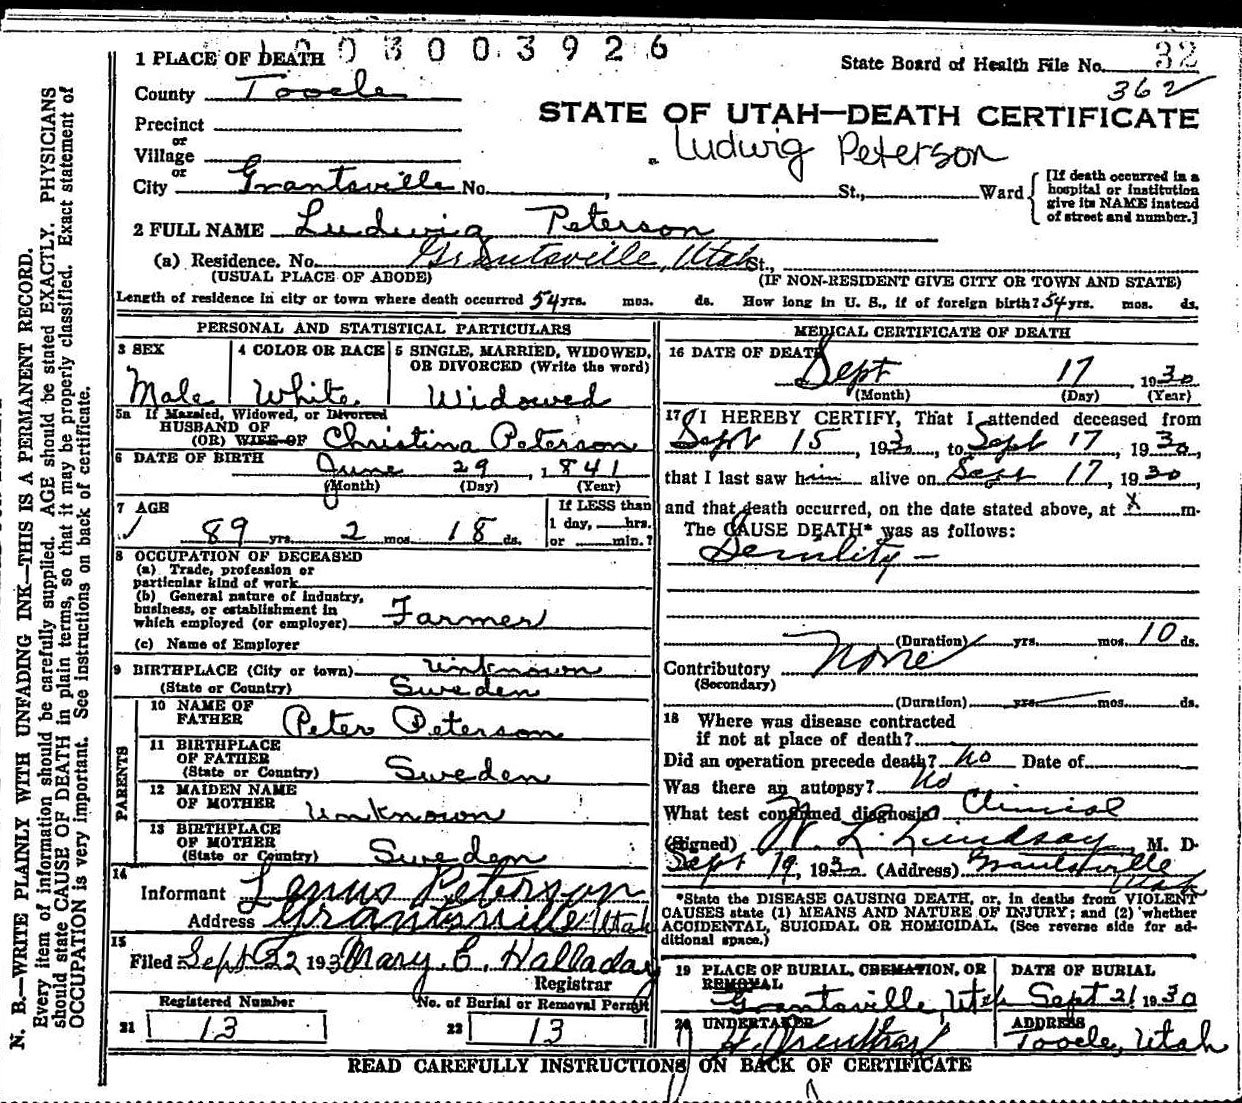 1003003926
1 PLACE OF DEATH
State Board of Health File No. 32
County Tooele
362
STATE OF UTAH—DEATH CERTIFICATE
Precinct
or
Village
Ludwig Peterson
or
City Grantsville No. , St., Ward
[If death occurred in a hospital or institution give its NAME instead of street and number.]
2 FULL NAME Ludwig Peterson
(a) Residence. No. Grantsville, Utah St.,
(USUAL PLACE OF ABODE) (IF NON-RESIDENT GIVE CITY OR TOWN AND STATE)
Length of residence in city or town where death occurred 54 yrs. mos. ds. How long in U. S., if of foreign birth? 54 yrs. mos. ds.
PERSONAL AND STATISTICAL PARTICULARS
3 SEX
Male
4 COLOR OR RACE
White
5 SINGLE, MARRIED, WIDOWED,
OR DIVORCED (Write the word)
Widowed
5a If Married, Widowed, or Divorced
HUSBAND OF
(OR) WIFE OF Christina Peterson
6 DATE OF BIRTH
June 29, 1841
(Month) (Day) (Year)
7 AGE
89 yrs. 2 mos. 18 ds.
If LESS than
1 day, hrs.
or min.?
8 OCCUPATION OF DECEASED
(a) Trade, profession or
particular kind of work
(b) General nature of industry,
business, or establishment in
which employed (or employer) Farmer
(c) Name of Employer
9 BIRTHPLACE (City or town) unknown
(State or Country) Sweden
PARENTS
10 NAME OF
FATHER Peter Peterson
11 BIRTHPLACE
OF FATHER
(State or Country) Sweden
12 MAIDEN NAME
OF MOTHER unknown
13 BIRTHPLACE
OF MOTHER
(State or Country) Sweden
14
Informant Lenus Peterson
Address Grantsville Utah
15
Filed Sept 22 193 Mary E. Halladay
Registrar
Registered Number No. of Burial or Removal Permit
21 13 22 13
MEDICAL CERTIFICATE OF DEATH
16 DATE OF DEATH
Sept 17 1930
(Month) (Day) (Year)
17 I HEREBY CERTIFY, That I attended deceased from
Sept 15, 1930, to Sept 17, 1930,
that I last saw him alive on Sept 17, 1930,
and that death occurred, on the date stated above, at X m.
The CAUSE DEATH* was as follows:
Senility —
(Duration) yrs. mos. 10 ds.
Contributory None
(Secondary)
(Duration) yrs. mos. ds.
18 Where was disease contracted
if not at place of death?
Did an operation precede death? No Date of
Was there an autopsy? No
What test confirmed diagnosis Clinical
(Signed) W. L. Lindsay M. D.
Sept 19, 1930 (Address) Grantsville
Utah
*State the DISEASE CAUSING DEATH, or, in deaths from VIOLENT
CAUSES state (1) MEANS AND NATURE OF INJURY; and (2) whether
ACCIDENTAL, SUICIDAL OR HOMICIDAL. (See reverse side for ad-
ditional space.)
19 PLACE OF BURIAL, CREMATION, OR
REMOVAL
Grantsville, Utah
DATE OF BURIAL
Sept 21 1930
20 UNDERTAKER
ADDRESS
Tooele, Utah
READ CAREFULLY INSTRUCTIONS ON BACK OF CERTIFICATE
N. B.—WRITE PLAINLY WITH UNFADING INK—THIS IS A PERMANENT RECORD.
Every item of information should be carefully supplied. AGE should be stated EXACTLY. PHYSICIANS
should state CAUSE OF DEATH in plain terms, so that it may be properly classified. Exact statement of
OCCUPATION is very important. See instructions on back of certificate.